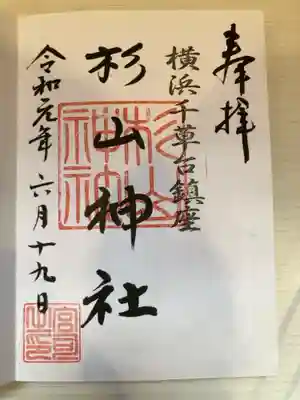 奉拝
横浜千草台鎮座
杉山神社
令和元年六月十九日
杉山神社